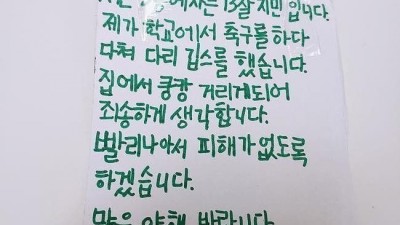 에사는 13살 지민 입니다.
제가 학교에서 축구를 하다
다쳐 다리 깁스를 했습니다.
집에서 쿵쾅 거리게되어
죄송하게 생각합니다.
빨리나아서 피해가없도록
하겠습니다.
많은 양해 바랍니다